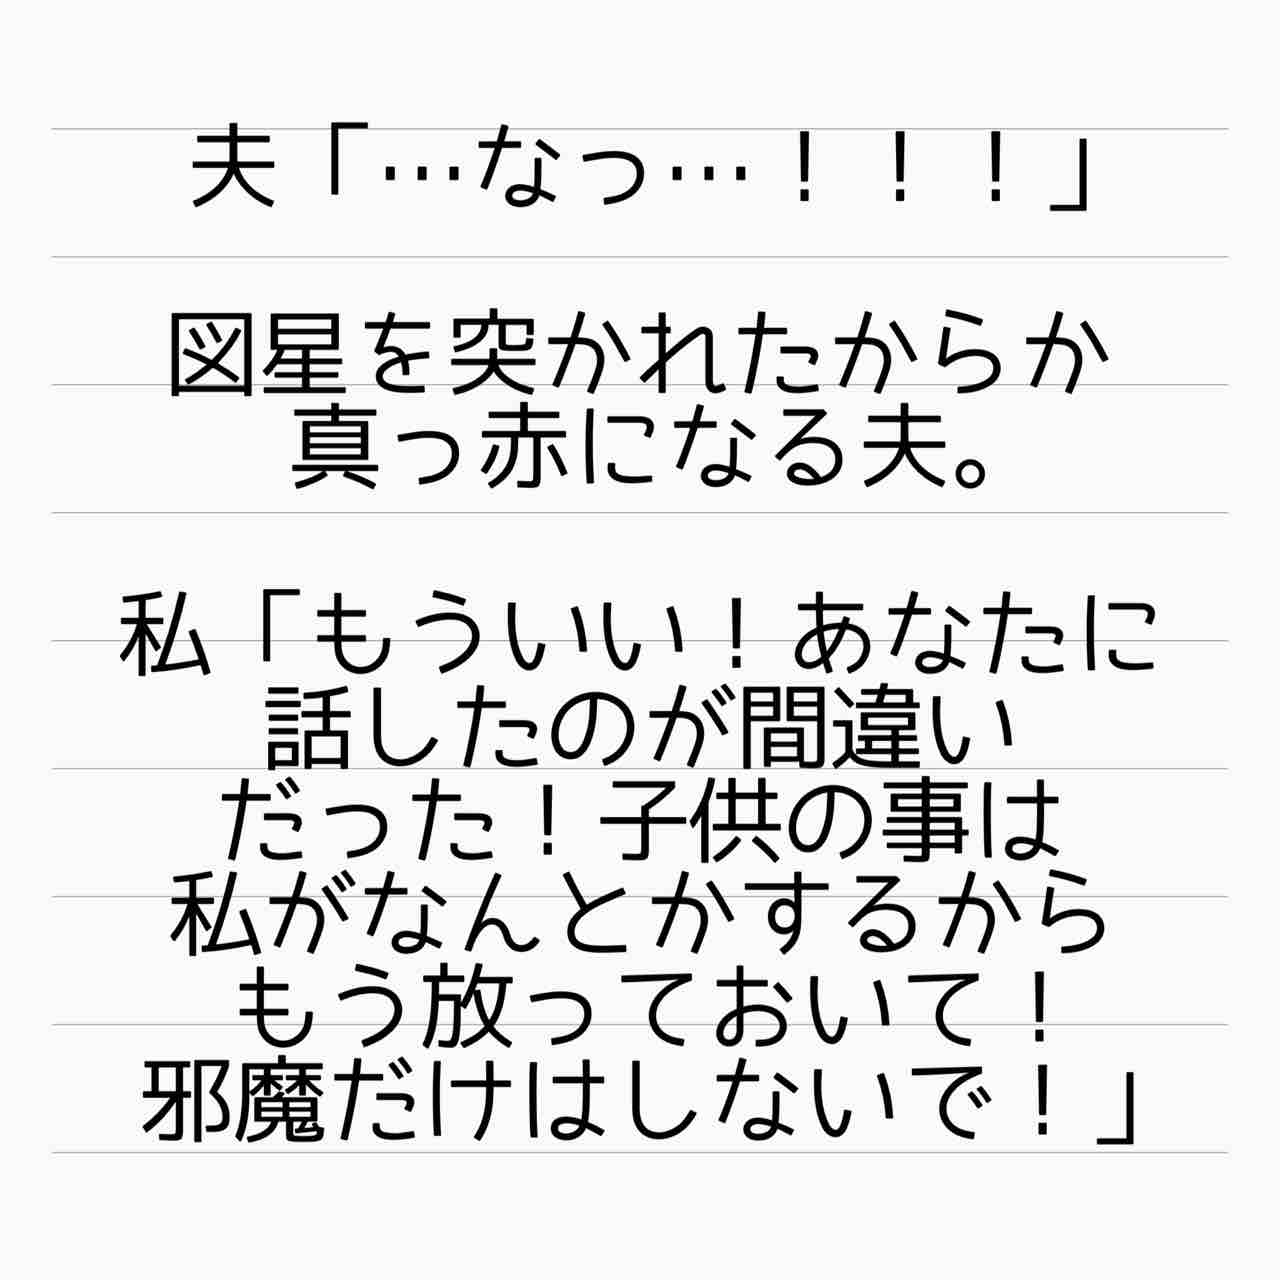 夫「…なっ…！！！」
図星を突かれたからか
真っ赤になる夫。
私「もういい！あなたに
話したのが間違い
だった！子供の事は
私がなんとかするから
もう放っておいて！
邪魔だけはしないで！」